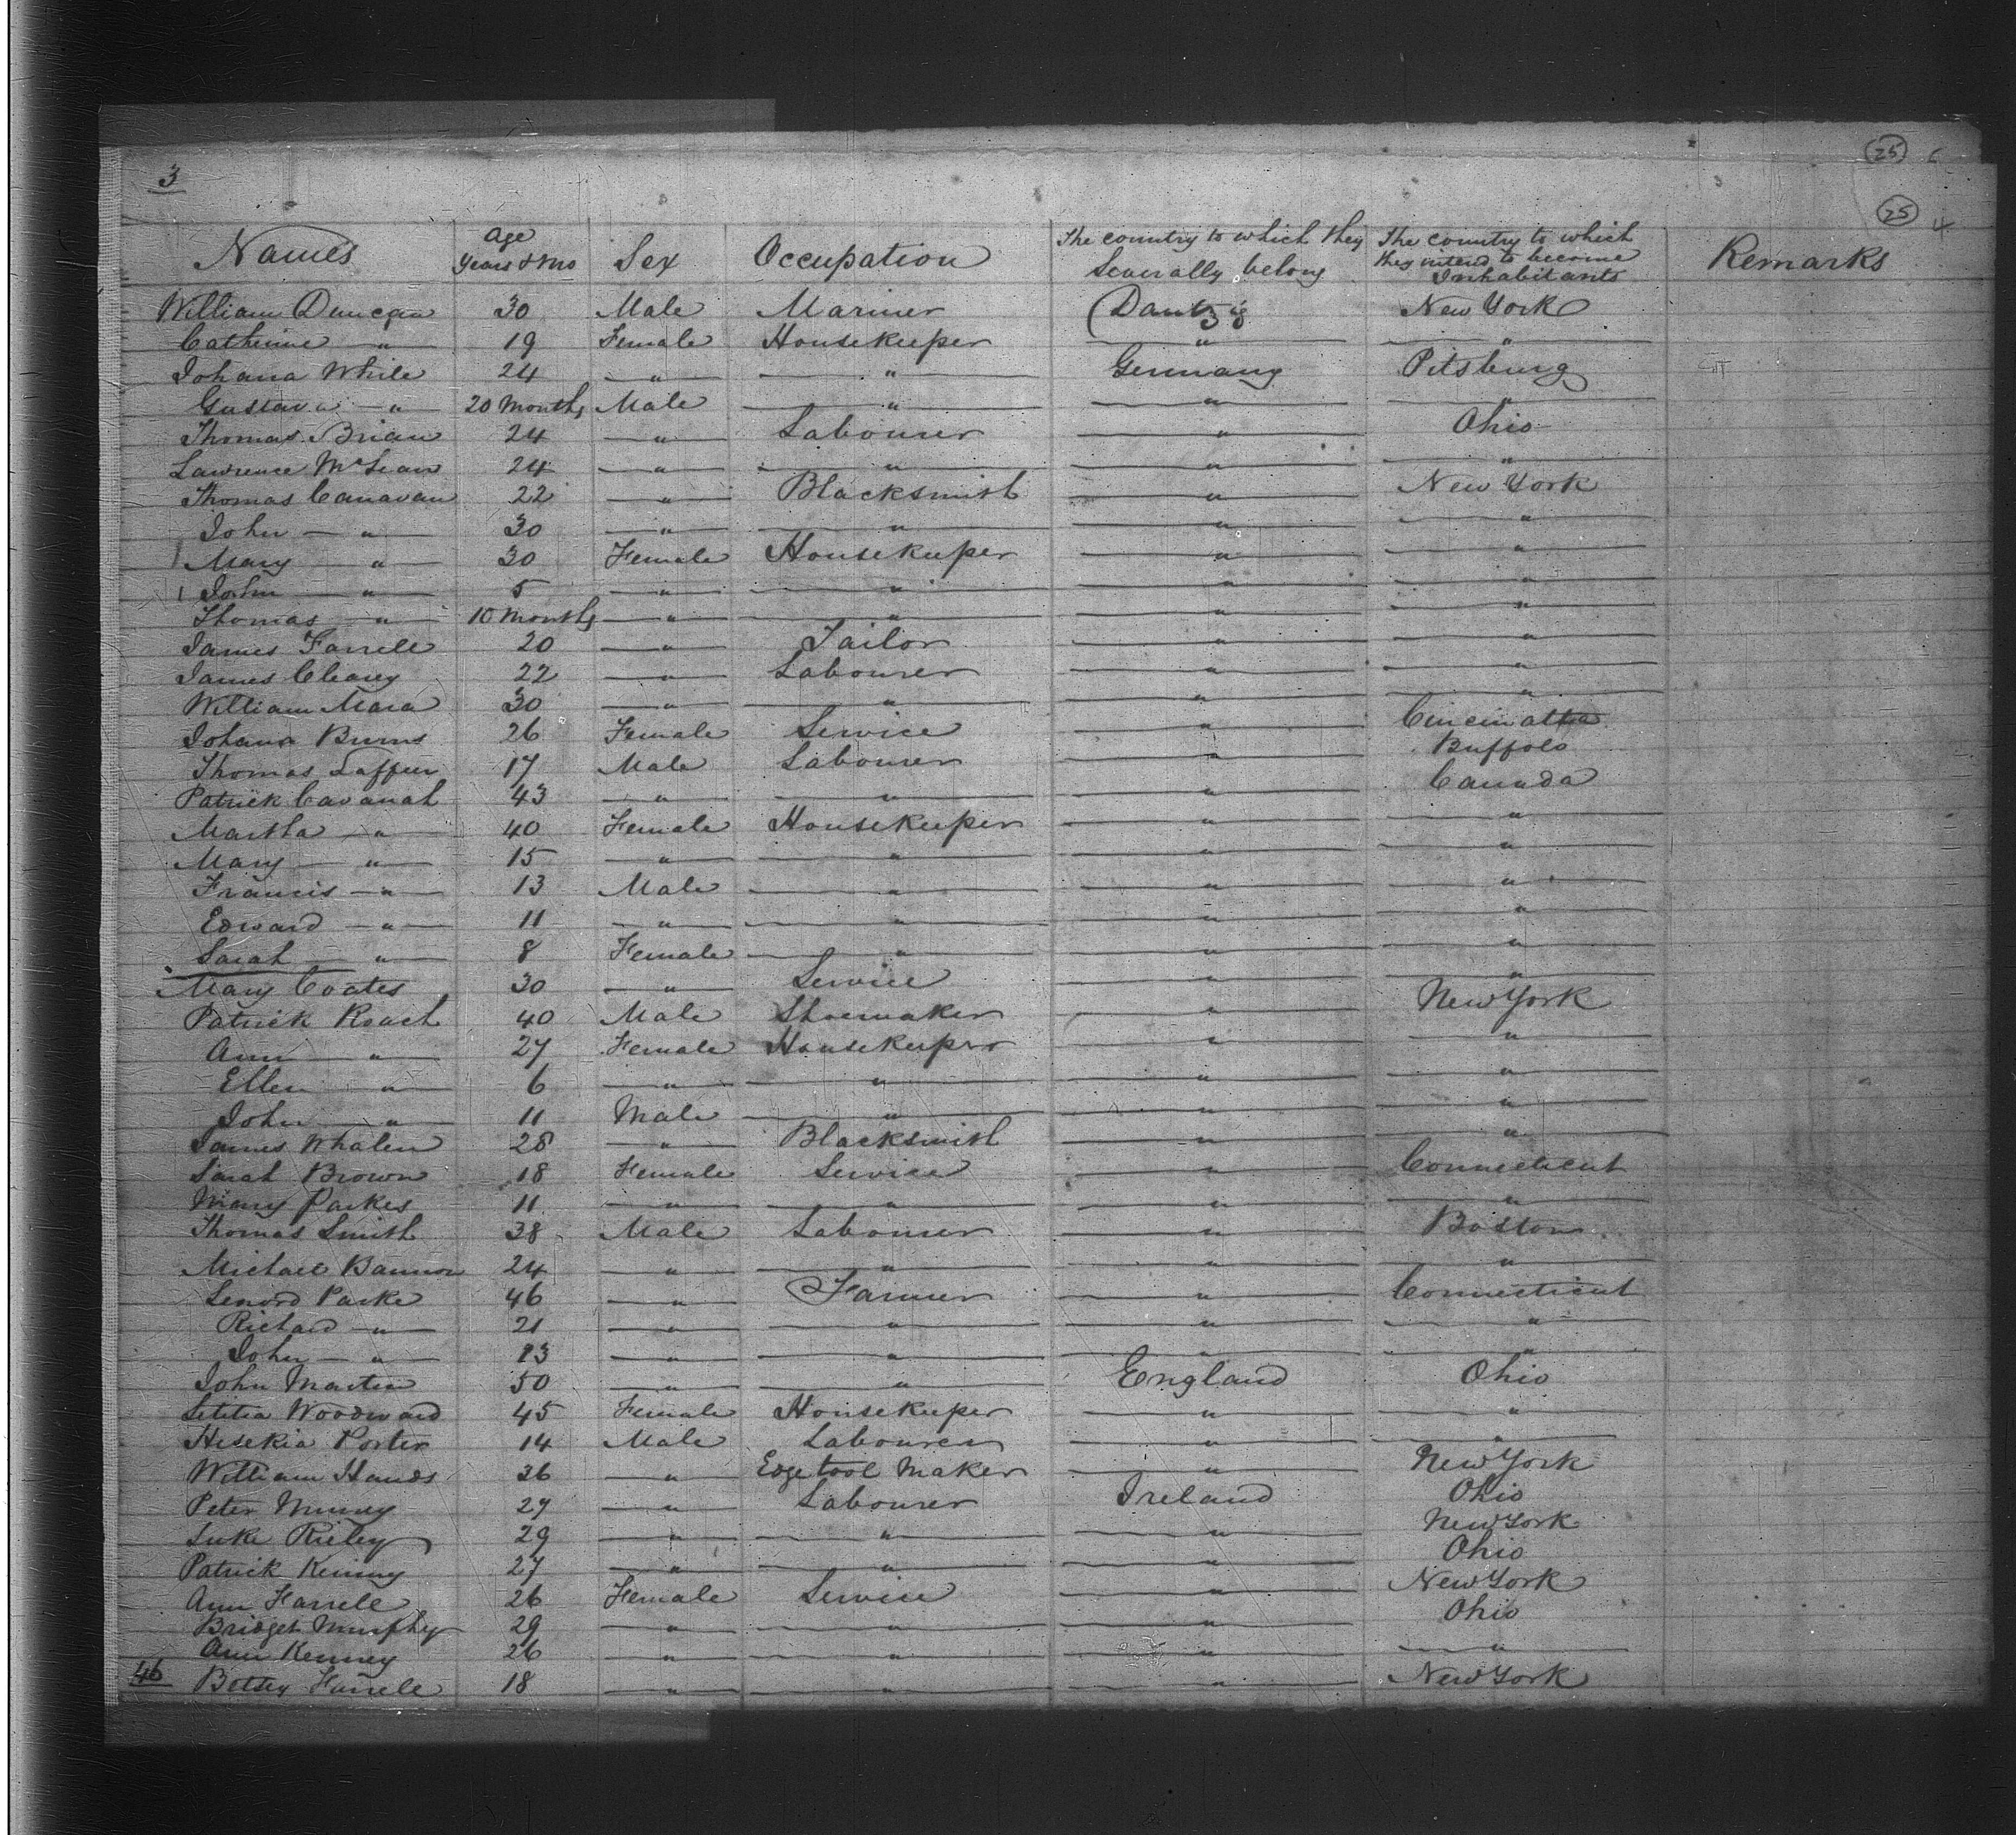 3
25
25 4
Names Age Years & Mo Sex Occupation The country to which they Severally belong The country to which they intend to become Inhabitants Remarks
William Duncan 30 Male Mariner Dantzig New York
Catherine " 19 Female Housekeeper " "
Johana While 24 " " Germany Pitsburg
Gustava " 20 Months Male " " "
Thomas Brian 24 " Labourer " Ohio
Lawrence McLean 24 " " " "
Thomas Canavan 22 " Blacksmith " New York
John " 30 " " " "
Mary " 30 Female Housekeeper " "
John " 5 " " " "
Thomas " 10 Months " " " "
James Farrele 20 " Tailor " "
James Cleary 22 " Labourer " "
William Mara 30 " " " "
Johana Burns 26 Female Service " Cincinatta
Thomas 17 Male Labourer " Buffolo
Patrick Cavanah 43 " " " Canada
Martha " 40 Female Housekeeper " "
Mary " 15 " " " "
Francis " 13 Male " " "
Edward " 11 " " " "
Sarah " 8 Female " " "
Mary Coates 30 " Service " "
Patrick Roach 40 Male Shoemaker " New York
Ann " 27 Female Housekeeper " "
Ellen " 6 " " " "
John " 11 Male " " "
James Whalen 28 " Blacksmith " "
Sarah Brown 18 Female Service " Connecticut
Mary Parkes 11 " " " "
Thomas Smith 38 Male Labourer " Boston
Michael Bannon 24 " " " "
Lenord Parke 46 " Farmer " Connecticut
Richard " 21 " " " "
John " 13 " " " "
John Martin 50 " " England Ohio
Letitia Woodward 45 Female Housekeeper " "
Hesekia Porter 14 Male Labourer " "
William Hands 36 " Edge tool Maker " New York
Peter 27 " Labourer Ireland Ohio
Luke Rieley 29 " " " New York
Patrick Kenny 27 " " " Ohio
Ann Farrele 26 Female Service " New York
Bridget Murphy 29 " " " Ohio
Ann Kenney 26 " " " "
46 Betsey Farrele 18 " " " New York